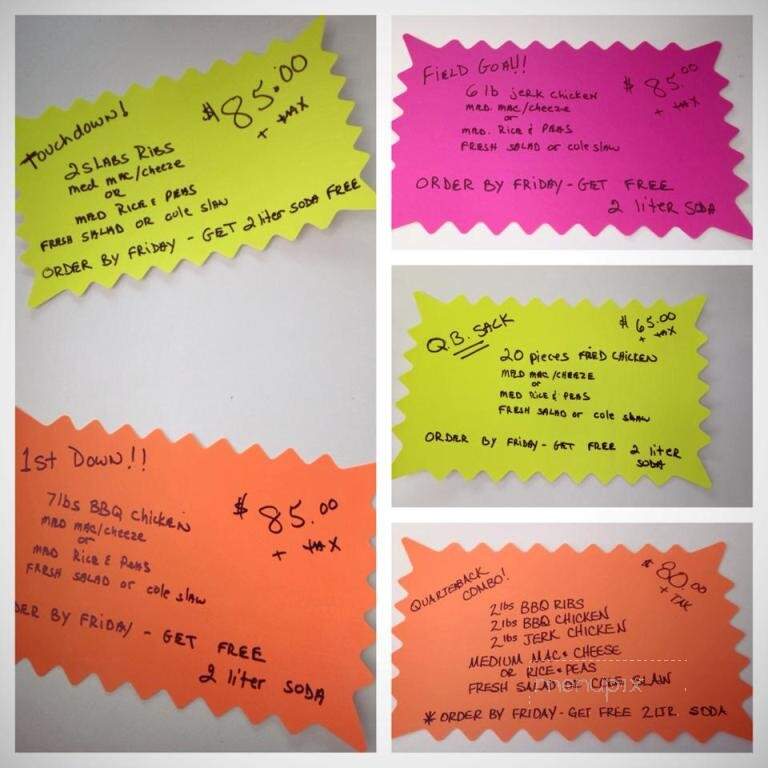 Touchdown!
$85.00
+ tax
2 SLABS RIBS
med mac/cheeze
OR
MED RICE & PEAS
FRESH SALAD OR cole slaw
ORDER BY FRIDAY - GET 2 liter SODA FREE
1st Down!!
$85.00
+ tax
7lbs BBQ Chicken
MED mac/cheeze
or
MED RICE & PEAS
FRESH SALAD or cole slaw
DER BY FRIDAY - GET FREE
2 liter SODA
FIELD GOAL!!
$85.00
+ tax
6 lb jerk chicken
MED. mac/cheeze
or
MED. RICE & PEAS
FRESH SALAD or cole slaw
ORDER BY FRIDAY - GET FREE
2 liter SODA
Q.B. SACK
$65.00
+ tax
20 pieces FRIED CHICKEN
MED MAC/CHEEZE
or
MED RICE & PEAS
FRESH SALAD or cole slaw
ORDER BY FRIDAY - GET FREE 2 liter
SODA
QUARTERBACK
COMBO!
$80.00
+ TAX
2lbs BBQ RIBS
2lbs BBQ CHICKEN
2lbs JERK CHICKEN
MEDIUM MAC & CHEESE
OR RICE & PEAS
FRESH SALAD OR COLE SLAW
* ORDER BY FRIDAY - GET FREE 2 LTR SODA
menupix